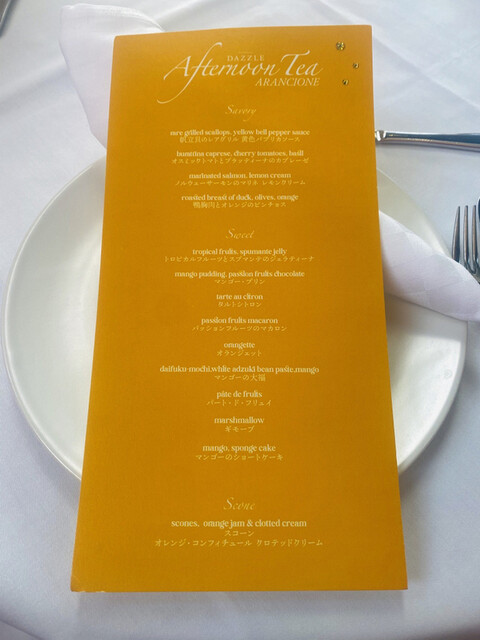 DAZZLE
Afternoon Tea
ARANCIONE
Savory
rare grilled scallops, yellow bell pepper sauce
帆立貝のレアグリル 黄色パプリカソース
burattina caprese, cherry tomatoes, basil
オスミックトマトとブラッティーナのカプレーゼ
marinated salmon, lemon cream
ノルウェーサーモンのマリネ レモンクリーム
roasted breast of duck, olives, orange
鴨胸肉とオレンジのピンチョス
Sweet
tropical fruits, spumante jelly
トロピカルフルーツとスプマンテのジェラティーナ
mango pudding, passion fruits chocolate
マンゴー・プリン
tarte au citron
タルトシトロン
passion fruits macaron
パッションフルーツのマカロン
orangette
オランジェット
daifuku-mochi,white adzuki bean paste,mango
マンゴーの大福
pâte de fruits
パート・ド・フリュイ
marshmallow
ギモーブ
mango, sponge cake
マンゴーのショートケーキ
Scone
scones, orange jam & clotted cream
スコーン
オレンジ・コンフィチュール クロテッドクリーム